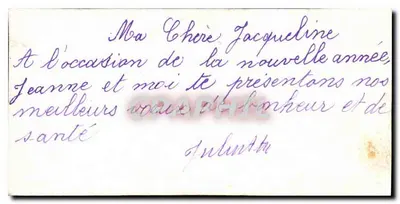 Ma Chère Jacqueline
A l'occasion de la nouvelle année,
Jeanne et moi te présentons nos
meilleurs vœux de bonheur et de
santé